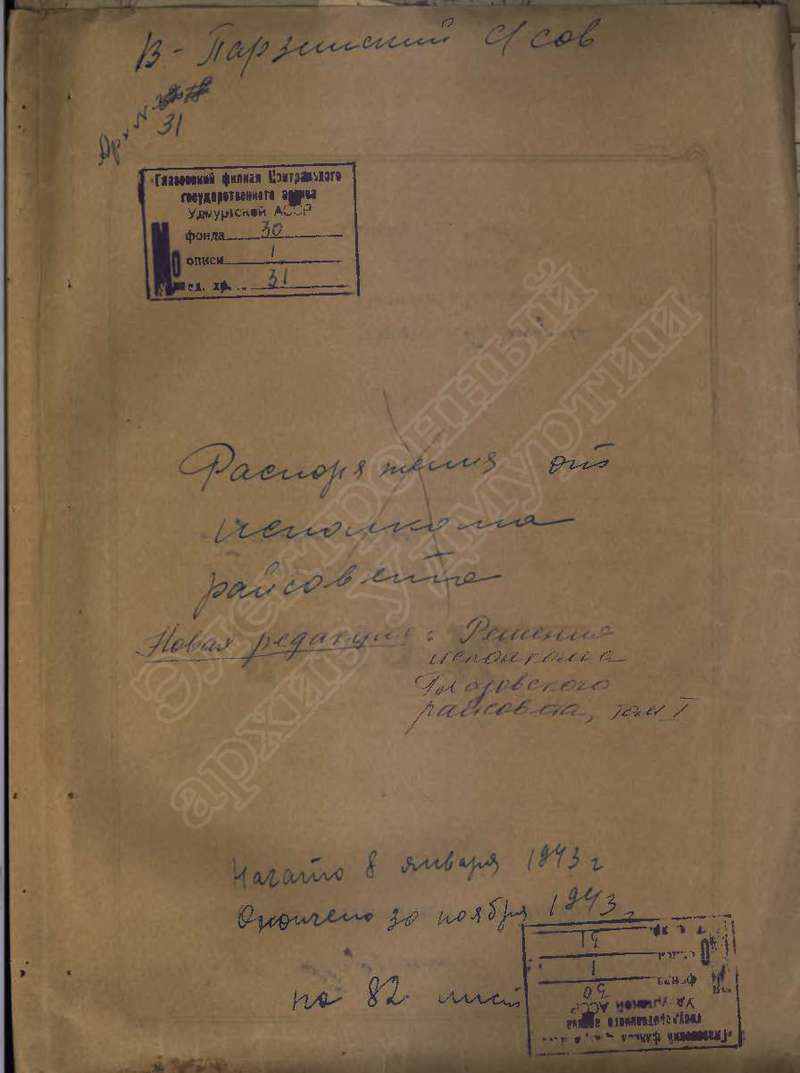 В-Парзинский с/сов
Арх N
31
Глазовский филиал Центрального
государственного архива
Удмуртской АССР
№ фонда 30
№ описи 1
№ ед. хр. 31
Распоряжения от
исполкома
райсовета
Новая редакция: Решения
исполкома
Глазовского
райсовета, том I
Начато 8 января 1943 г
Окончено 30 ноября 1943 г
на 82 лист
Глазовский филиал
государственного архива
Удмуртской АССР
фонда 30
описи 1
ед. хр.
электронный
архив удмуртии